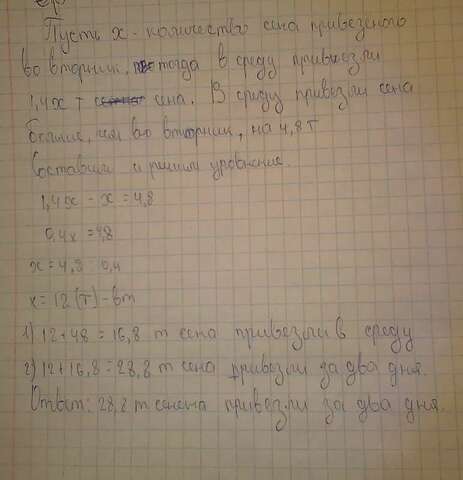 Пусть x - количество сена привезеного
во вторник, тогда в среду привезли
1,4x т сена. В среду привезли сена
больше, чем во вторник, на 4,8 т
Составим и решим уравнение.
1,4x - x = 4,8
0,4x = 4,8
x = 4,8 : 0,4
x = 12 (т) - вт
1) 12 + 48 = 16,8 т сена привезли в среду
2) 12 + 16,8 = 28,8 т сена привезли за два дня.
Ответ: 28,8 т сена привезли за два дня.